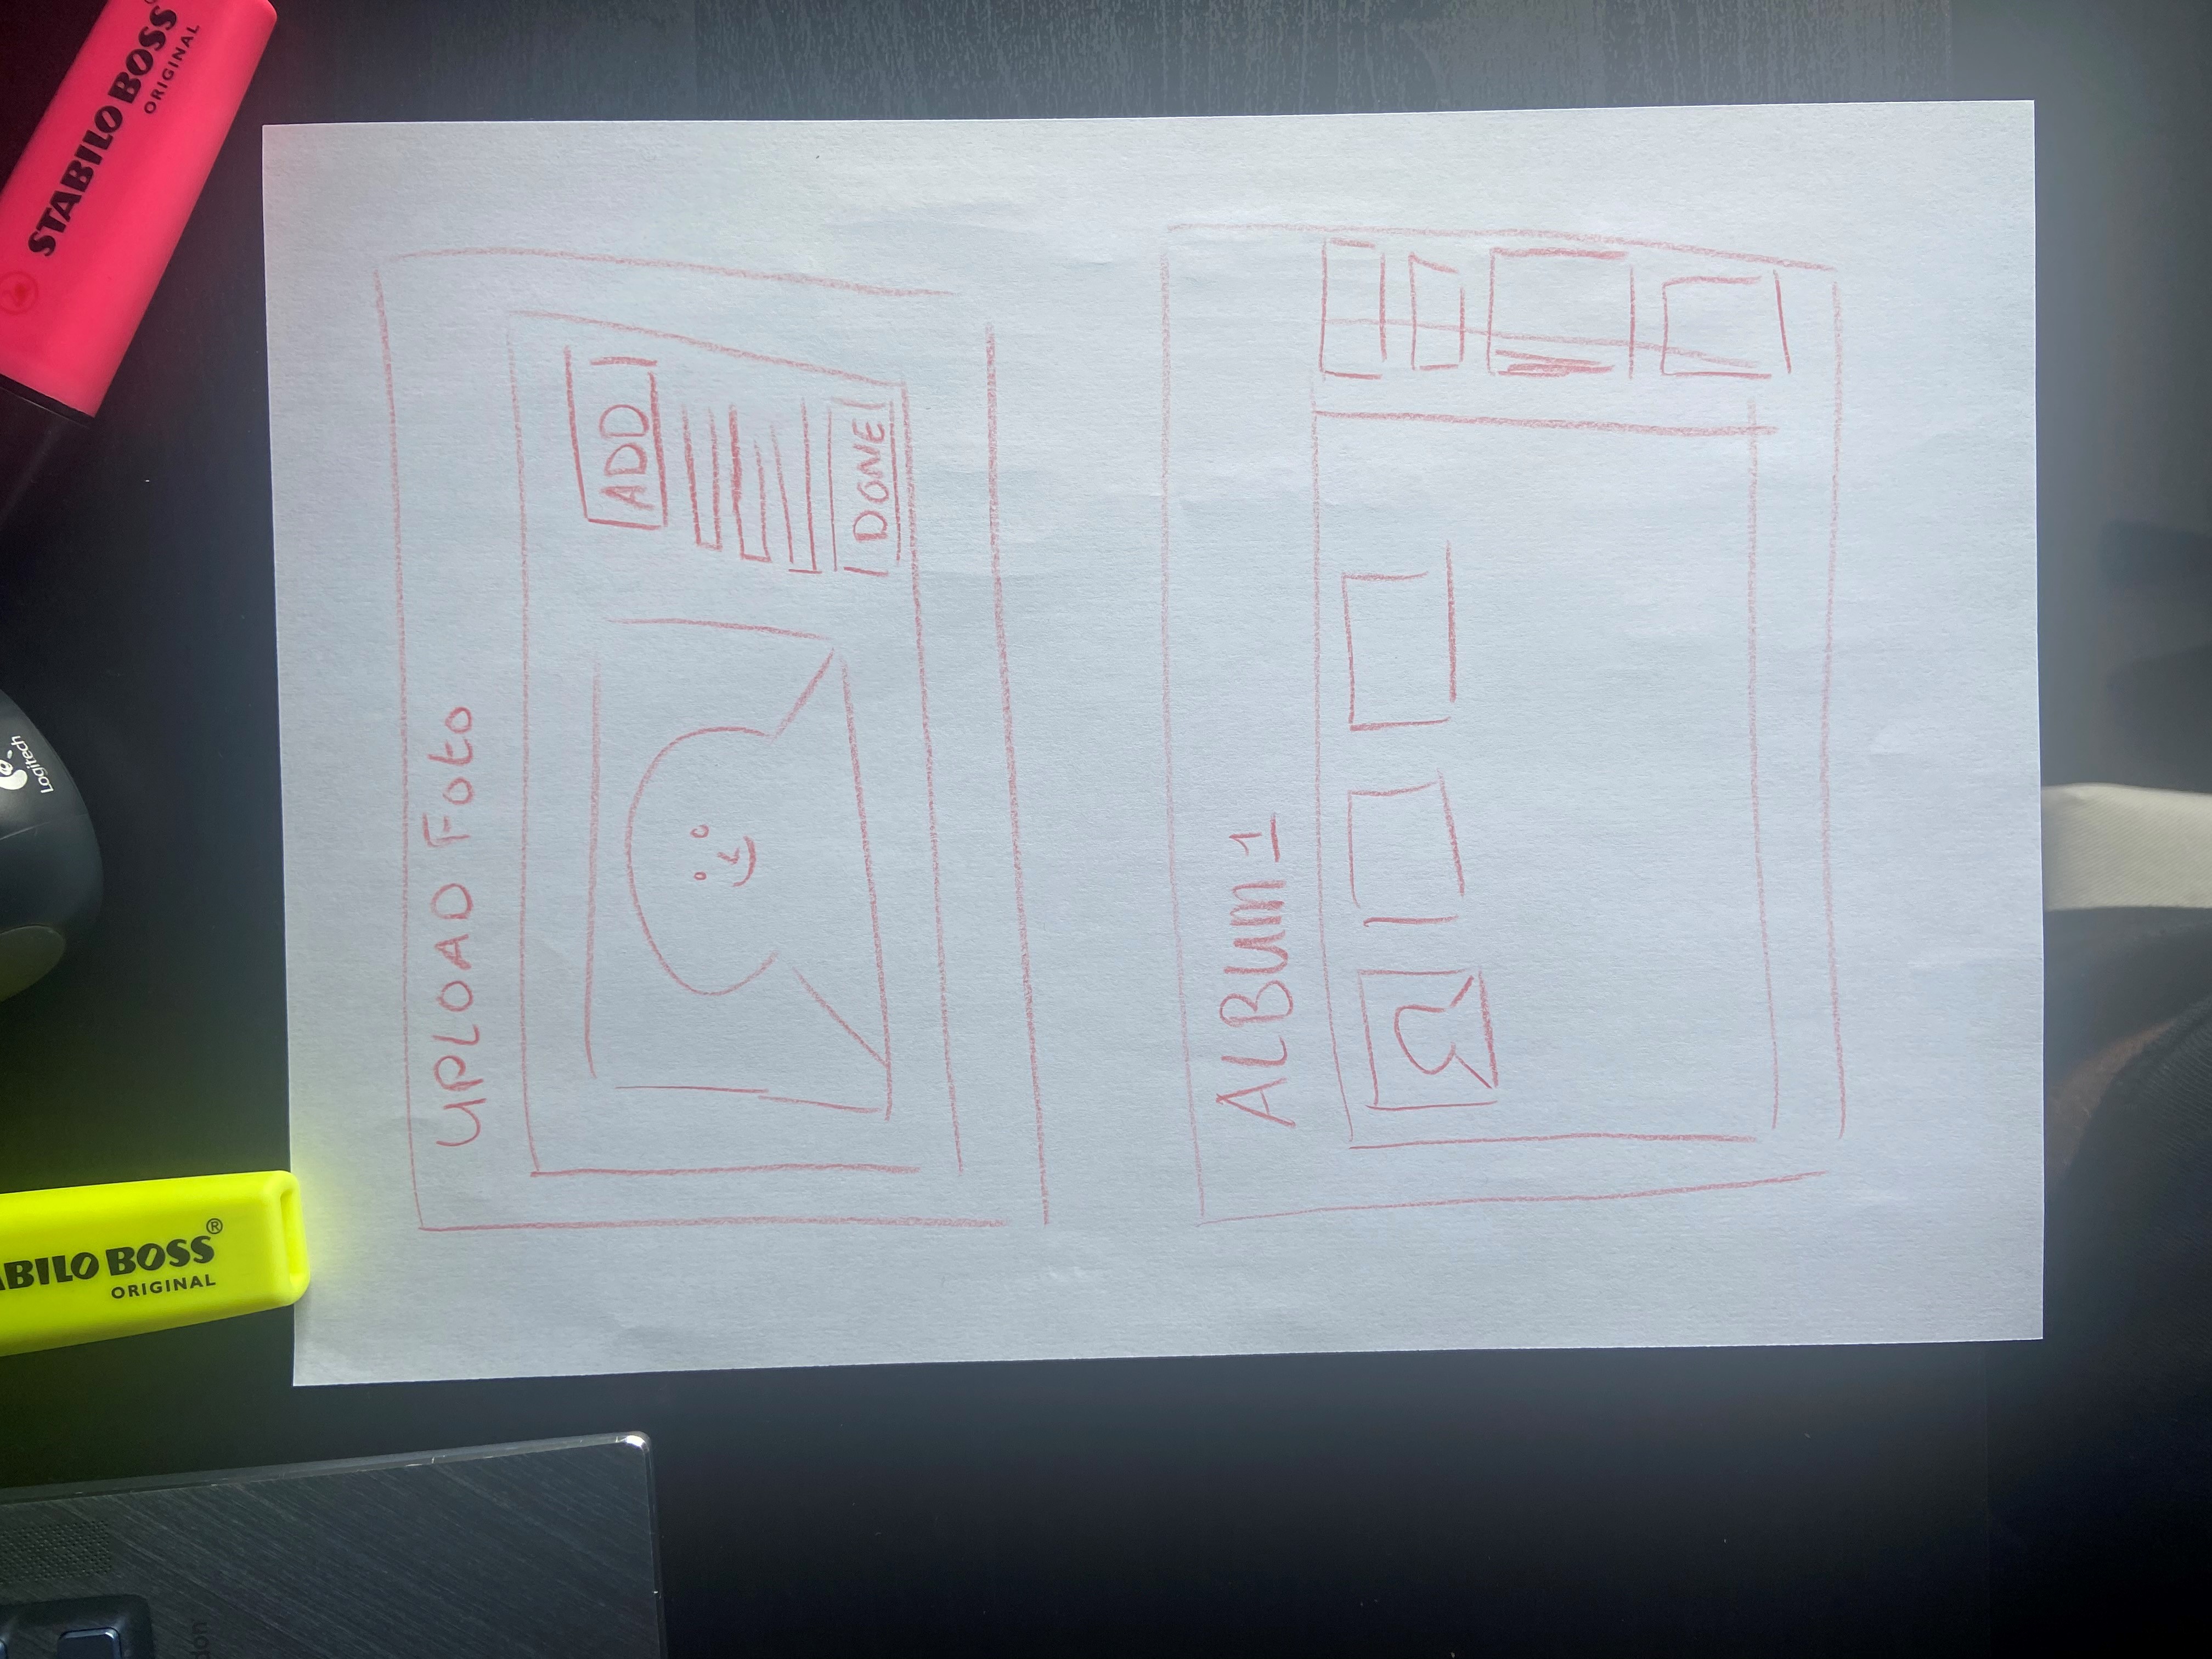 STABILO BOSS®
ORIGINAL
Logitech
STABILO BOSS
ORIGINAL
UPLOAD Foto
ADD
DONE
ALBUM 1